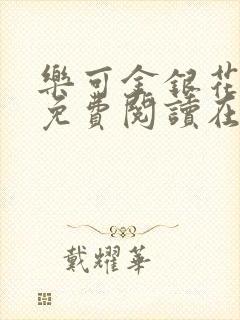 樂可金銀花
免費閱讀在
戴耀華